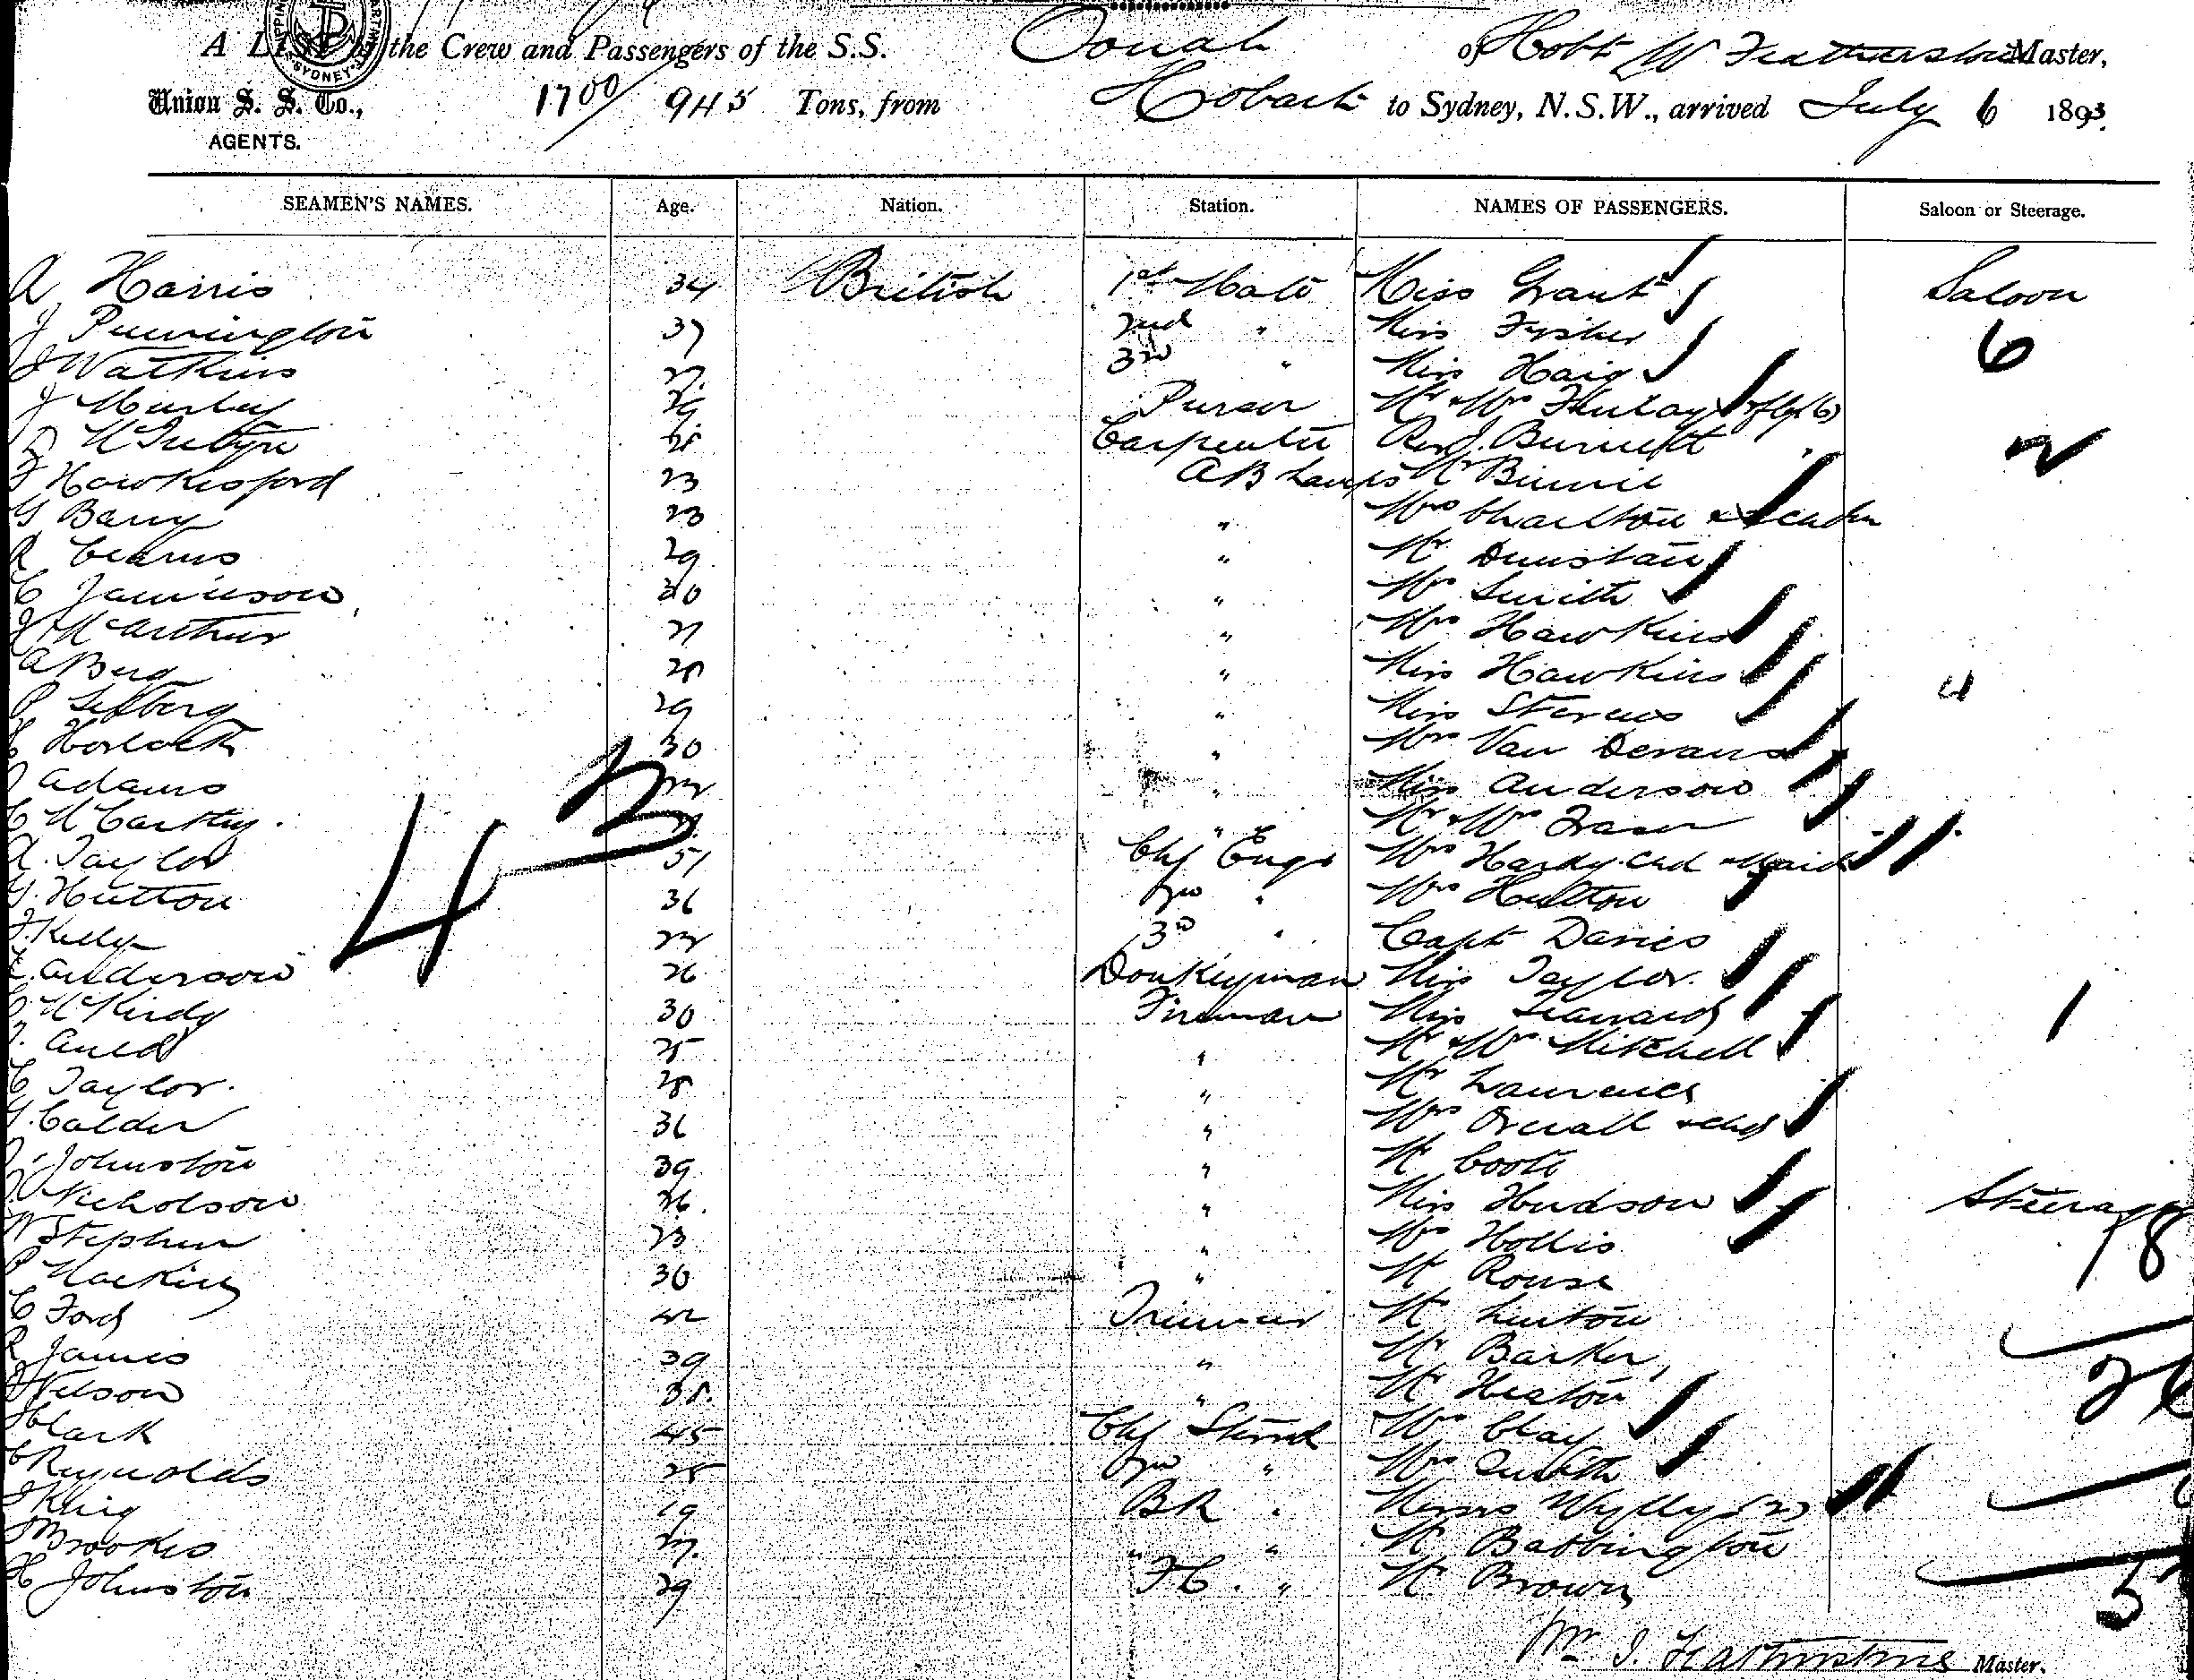 A LIST of the Crew and Passengers of the S.S. Oonah of Hobt W Featherstone Master,
Union S. S. Co., AGENTS. 1700/945 Tons, from Hobart to Sydney, N.S.W., arrived July 6 1893.
SEAMEN'S NAMES. Age. Nation. Station. NAMES OF PASSENGERS. Saloon or Steerage.
A Harris 34 British 1st Mate Miss Grant Saloon
J Pennington 37 2nd " Miss Fysher 6
J Watkins 27 3rd " Miss Haig
J Murley 29 Purser Mr & Mrs Finlay & fly (6)
McIntyre Carpenter Rev J. Burnett 2
F Hawkesford 23 AB Lamps Mr Binnie
G Barry 23 " Mrs Charlton &
R Cearns 29 " Mr Dunstan
C Jamieson 30 " Mrs Smith
McArthur 27 " Mrs Hawkins
A Berg 28 " Miss Hawkins 4
P Sefberg 29 " Miss Stevens
Horlock 30 " Mrs Van
Adams 22 " Miss Anderson
C McCarthy. " Mr & Mrs Fraser
A. Taylor 51 Chf Engr Mrs Hardy Chd & Maid
G. Hutton 36 2nd " Mrs Hutton
J. Kelly 22 3rd " Capt Davies
Anderson 26 Donkeyman Miss Taylor.
McKirdy 30 Fireman Miss 1
Auld 25 " Mr & Mrs Mitchell
C Taylor. 28 " Mr Lawrence
G. Calder 36 " Mrs Overall & chd
J. Johnston 39 " Mr Coote
Nicholson 26. " Miss Hudson Steerage
W Stephen 23 " Mrs Hollis 18
P Mackin 30 " Mr Rouse
C Ford 42 Trimmer Mr Linton
R James 39 " Mr Barker
Nelson 38. " Mr Heaton
Clark 45 Chf Steward Mrs Clay
C Reynolds 28 2nd " Mrs
J King 19 BR " Misses Wylly (2)
Brookes 27. " " Mr Babbington
H Johnston 29 FC. " Mr Brown
43
Wm J. Featherstone Master.